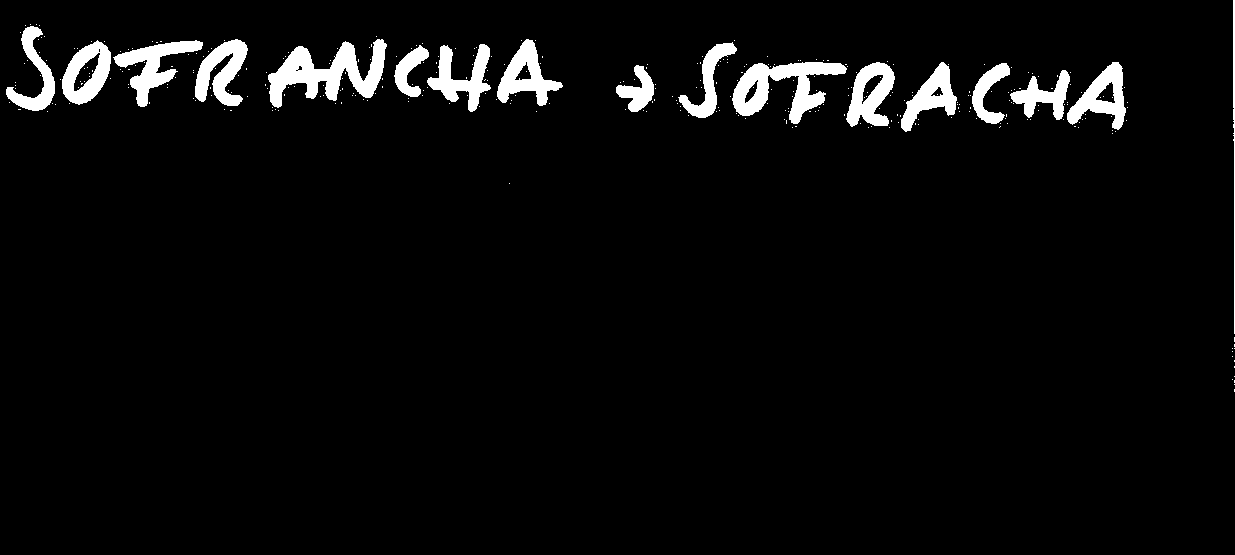 SOFRANCHA → SOFRACHA